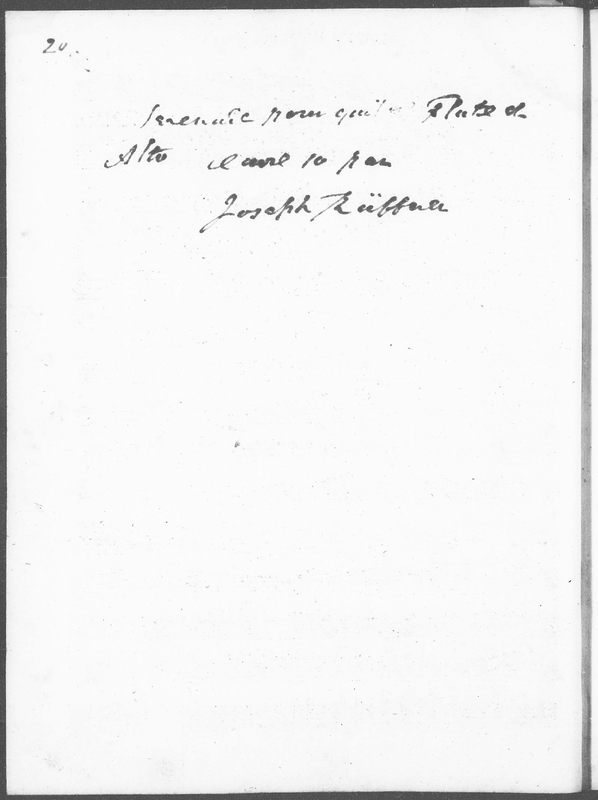 20.
Serenade pour guit Flute &
Alto œuvre 10 par
Joseph Küffner